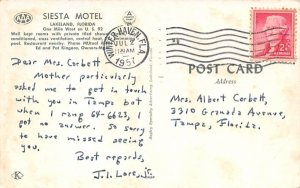 AAA
SIESTA MOTEL
LAKELAND, FLORIDA
One Mile West on U. S. 92
Well kept rooms with private tiled showers,
conditioned, cross ventilation, central heat,
pool. Restaurant nearby. Phone MUtual
Ed and Pat Kingene, Owners
Dear Mrs. Corbett
Mother particularly
asked me to get in touch
with you in Tampa but
when I rang 64-6623, I
got no answer. So sorry
to have missed seeing
you.
Best regards
J. I. Lore, Jr.
K
WINTER HAVEN FLA.
JUL 2
AM
1957
2¢
POST CARD
Address
Mrs. Albert Corbett,
3310 Granada Avenue,
Tampa, Florida.